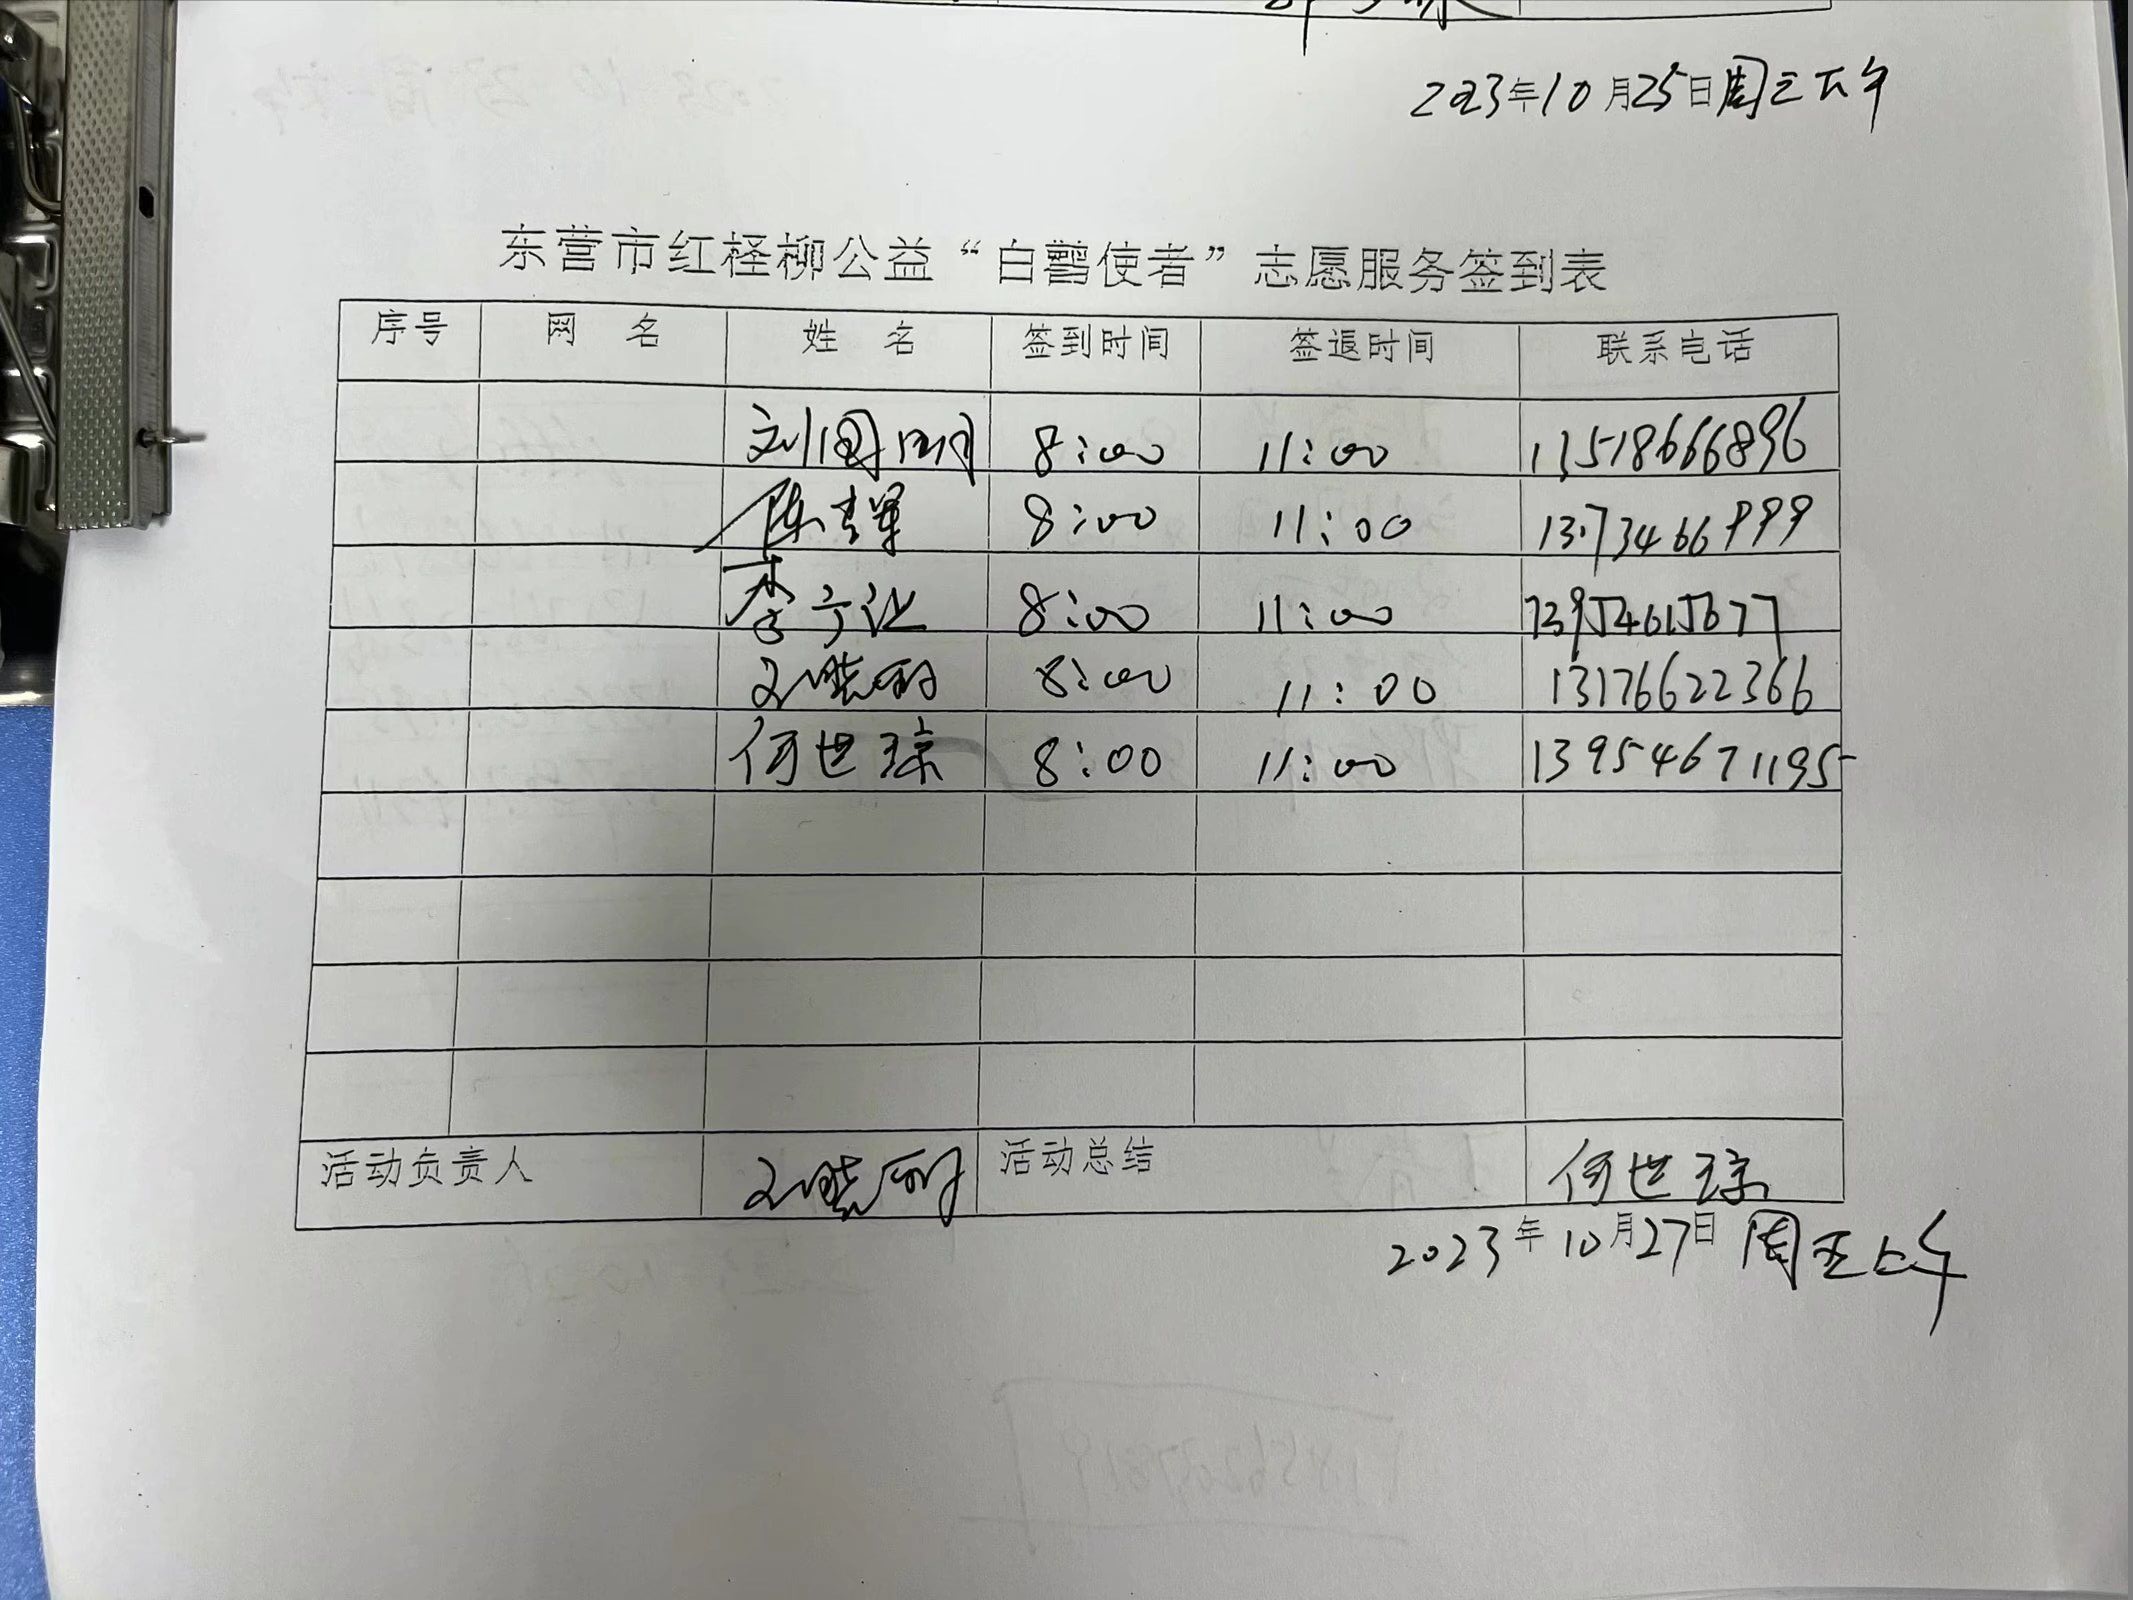 2023年10月25日周三下午
东营市红柽柳公益“白鹳使者”志愿服务签到表
序号 网 名 姓 名 签到时间 签退时间 联系电话
刘国明 8:00 11:00 13518666896
陈 8:00 11:00 13734669999
李 8:00 11:00 13954615677
刘晓丽 8:00 11:00 13176622366
何世琼 8:00 11:00 13954671195
活动负责人 刘晓丽 活动总结 何世琼
2023年10月27日周五上午